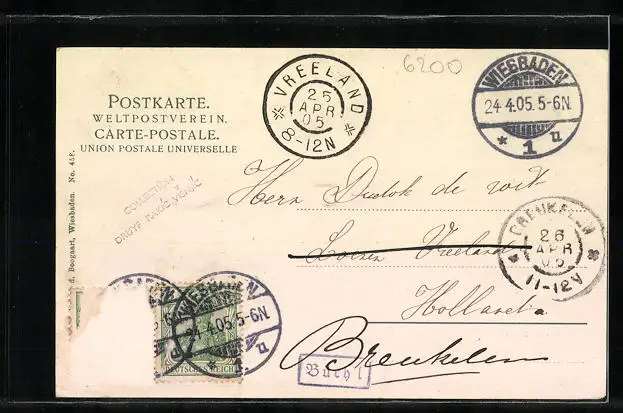 6200
POSTKARTE.
WELTPOSTVEREIN.
CARTE-POSTALE.
UNION POSTALE UNIVERSELLE
VREELAND
25
APR
05
8-12N
WIESBADEN
24.4.05.5-6N.
* 1 n
COLLECTION
Boogaart, Wiesbaden. No. 458.
Herrn
Loenen Vreeland
Holland
Breukelen
BREUKELEN
26
APR
05
11-12V
WIESBADEN
24.4.05.5-6N.
DEUTSCHES REICH